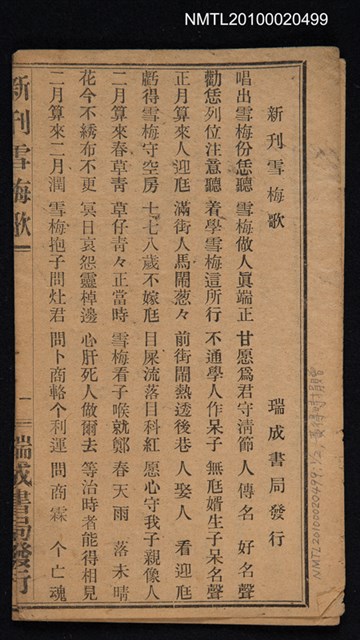 NMTL20100020499
新刊雪梅歌
瑞成書局發行
唱出雪梅份恁聽 雪梅做人眞端正 甘愿爲君守淸節 人傳名 好名聲
勸恁列位注意聽 着學雪梅這所行 不通學人作呆子 無尪婿生子呆名聲
正月算來人迎尪 滿街人馬鬧葱々 前街鬧熱透後巷 人娶人 看迎尪
虧得雪梅守空房 十七八歲不嫁尪 目屎流落目科紅 愿心守我子親像人
二月算來春草靑 草仔靑々正當時 雪梅看子喉就鄭 春天雨 落未晴
花今不綉布不更 冥日哀怨靈棹邊 心肝死人做爾去 等治時者能得相見
二月算來二月潤 雪梅抱子問灶君 問卜商輅个利運 問商霖 个亡魂
新刊雪梅歌
一
瑞成書局發行
NMTL20100020499